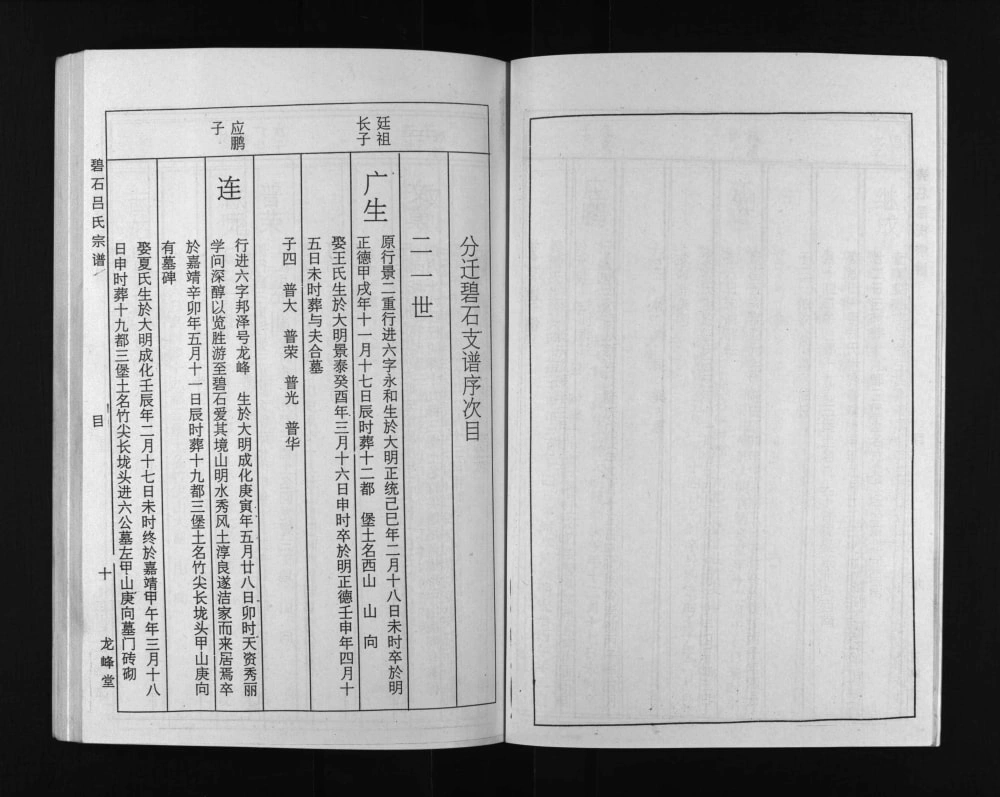 分迁碧石支谱序次目
二一世
廷祖
长子
广生
原行景二重行进六字永和生於大明正统己巳年二月十八日未时卒於明
正德甲戌年十一月十七日辰时葬十二都 堡土名西山 山 向
娶王氏生於大明景泰癸酉年三月十六日申时卒於明正德壬申年四月十
五日未时葬与夫合墓
子四 普大 普荣 普光 普华
应鹏
子
连
行进六字邦泽号龙峰 生於大明成化庚寅年五月廿八日卯时天资秀丽
学问深醇以览胜游至碧石爱其境山明水秀风土淳良遂洁家而来居焉卒
於嘉靖辛卯年五月十一日辰时葬十九都三堡土名竹尖长垅头甲山庚向
有墓碑
娶夏氏生於大明成化壬辰年二月十七日未时终於嘉靖甲午年三月十八
日申时葬十九都三堡土名竹尖长垅头进六公墓左甲山庚向墓门砖砌
碧石吕氏宗谱
目
十
龙峰堂